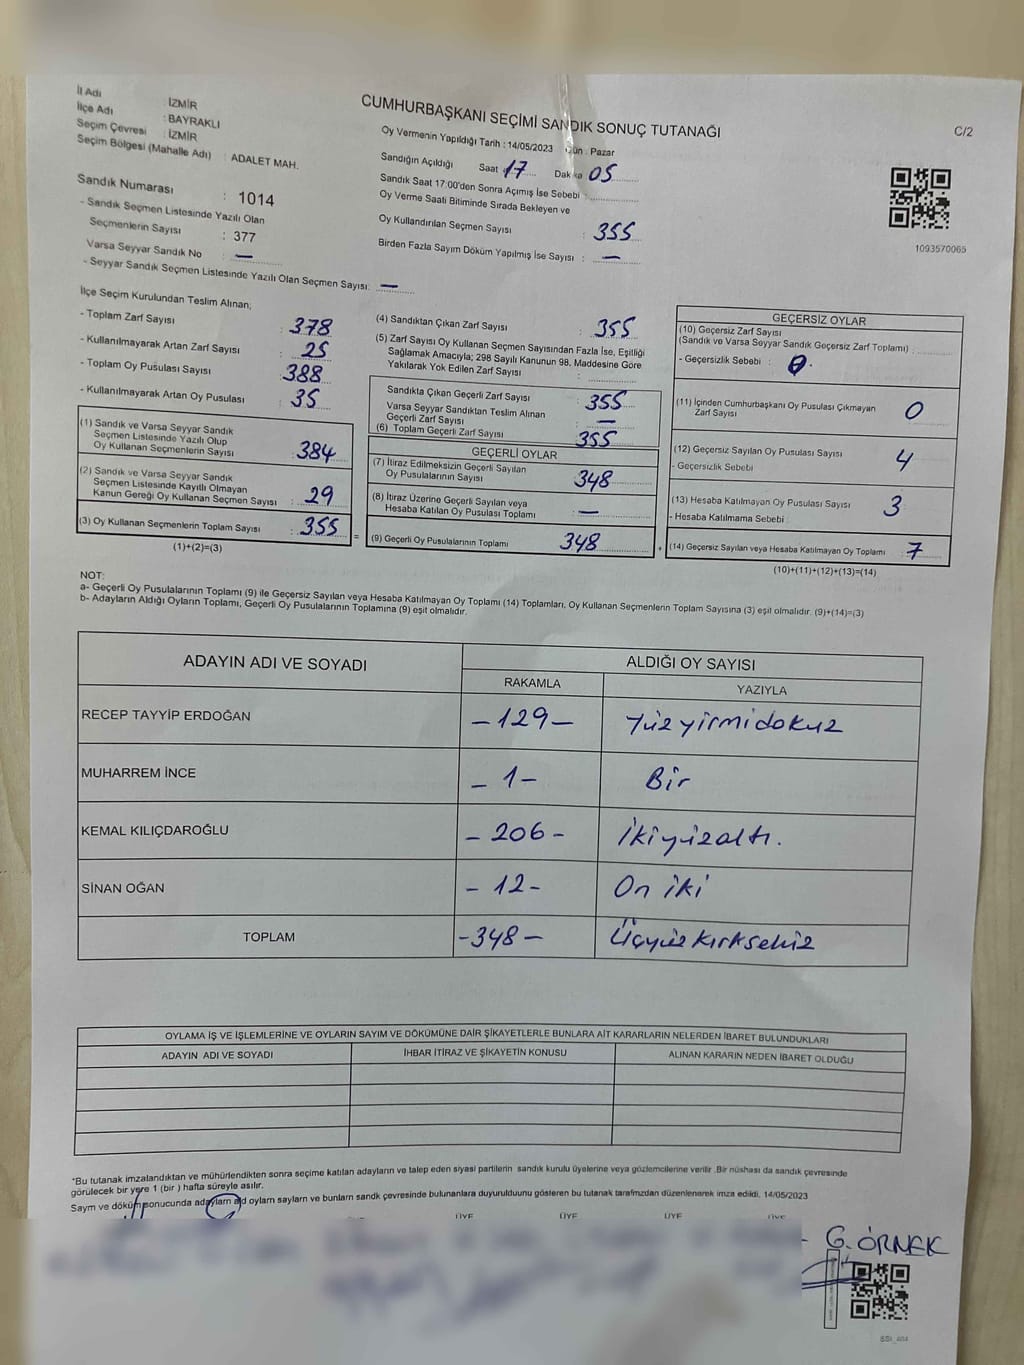 İl Adı İZMİR
İlçe Adı : BAYRAKLI
Seçim Çevresi : İZMİR
Seçim Bölgesi (Mahalle Adı) : ADALET MAH.
CUMHURBAŞKANI SEÇİMİ SANDIK SONUÇ TUTANAĞI
C/2
Oy Vermenin Yapıldığı Tarih : 14/05/2023 Gün : Pazar
Sandığın Açıldığı Saat 17 Dakika 05
Sandık Saat 17:00'den Sonra Açımış İse Sebebi :
Oy Verme Saati Bitiminde Sırada Bekleyen ve
Oy Kullandırılan Seçmen Sayısı : 355
Birden Fazla Sayım Döküm Yapılmış İse Sayısı : —
1093570065
Sandık Numarası : 1014
- Sandık Seçmen Listesinde Yazılı Olan
Seçmenlerin Sayısı : 377
Varsa Seyyar Sandık No : —
- Seyyar Sandık Seçmen Listesinde Yazılı Olan Seçmen Sayısı: —
İlçe Seçim Kurulundan Teslim Alınan;
- Toplam Zarf Sayısı : 378
- Kullanılmayarak Artan Zarf Sayısı : 25
- Toplam Oy Pusulası Sayısı : 388
- Kullanılmayarak Artan Oy Pusulası : 35
(1) Sandık ve Varsa Seyyar Sandık
Seçmen Listesinde Yazılı Olup
Oy Kullanan Seçmenlerin Sayısı : 384
(2) Sandık ve Varsa Seyyar Sandık
Seçmen Listesinde Kayıtlı Olmayan
Kanun Gereği Oy Kullanan Seçmen Sayısı : 29
(3) Oy Kullanan Seçmenlerin Toplam Sayısı : 355
(1)+(2)=(3)
=
(4) Sandıktan Çıkan Zarf Sayısı : 355
(5) Zarf Sayısı Oy Kullanan Seçmen Sayısından Fazla İse, Eşitliği
Sağlamak Amacıyla; 298 Sayılı Kanunun 98. Maddesine Göre
Yakılarak Yok Edilen Zarf Sayısı :
Sandıkta Çıkan Geçerli Zarf Sayısı : 355
Varsa Seyyar Sandıktan Teslim Alınan
Geçerli Zarf Sayısı : —
(6) Toplam Geçerli Zarf Sayısı 355
GEÇERLİ OYLAR
(7) İtiraz Edilmeksizin Geçerli Sayılan
Oy Pusulalarının Sayısı : 348
(8) İtiraz Üzerine Geçerli Sayılan veya
Hesaba Katılan Oy Pusulası Toplamı : —
(9) Geçerli Oy Pusulalarının Toplamı : 348
+
GEÇERSİZ OYLAR
(10) Geçersiz Zarf Sayısı
(Sandık ve Varsa Seyyar Sandık Geçersiz Zarf Toplamı) :
- Geçersizlik Sebebi : 0
(11) İçinden Cumhurbaşkanı Oy Pusulası Çıkmayan
Zarf Sayısı 0
(12) Geçersiz Sayılan Oy Pusulası Sayısı : 4
- Geçersizlik Sebebi :
(13) Hesaba Katılmayan Oy Pusulası Sayısı : 3
- Hesaba Katılmama Sebebi :
(14) Geçersiz Sayılan veya Hesaba Katılmayan Oy Toplamı : 7
(10)+(11)+(12)+(13)=(14)
NOT:
a- Geçerli Oy Pusulalarının Toplamı (9) ile Geçersiz Sayılan veya Hesaba Katılmayan Oy Toplamı (14) Toplamları, Oy Kullanan Seçmenlerin Toplam Sayısına (3) eşit olmalıdır. (9)+(14)=(3)
b- Adayların Aldığı Oyların Toplamı, Geçerli Oy Pusulalarının Toplamına (9) eşit olmalıdır.
ADAYIN ADI VE SOYADI
ALDIĞI OY SAYISI
RAKAMLA YAZIYLA
RECEP TAYYİP ERDOĞAN -129- Yüzyirmidokuz
MUHARREM İNCE -1- Bir
KEMAL KILIÇDAROĞLU -206- İkiyüzaltı.
SİNAN OĞAN -12- On iki
TOPLAM -348- Üçyüzkırksekiz
OYLAMA İŞ VE İŞLEMLERİNE VE OYLARIN SAYIM VE DÖKÜMÜNE DAİR ŞİKAYETLERLE BUNLARA AİT KARARLARIN NELERDEN İBARET BULUNDUKLARI
ADAYIN ADI VE SOYADI İHBAR İTİRAZ VE ŞİKAYETİN KONUSU ALINAN KARARIN NEDEN İBARET OLDUĞU
*Bu tutanak imzalandıktan ve mühürlendikten sonra seçime katılan adayların ve talep eden siyasi partilerin sandık kurulu üyelerine veya gözlemcilerine verilir .Bir nüshası da sandık çevresinde
görülecek bir yere 1 (bir ) hafta süreyle asılır.
Sayım ve döküm sonucunda adayların oyların sayları ve bunların sandık çevresinde bulunanlara duyurulduunu gösteren bu tutanak tarafmzdan düzenlenerek imza edildi. 14/05/2023
ÜYE ÜYE ÜYE ÜYE
G. ÖRNEK